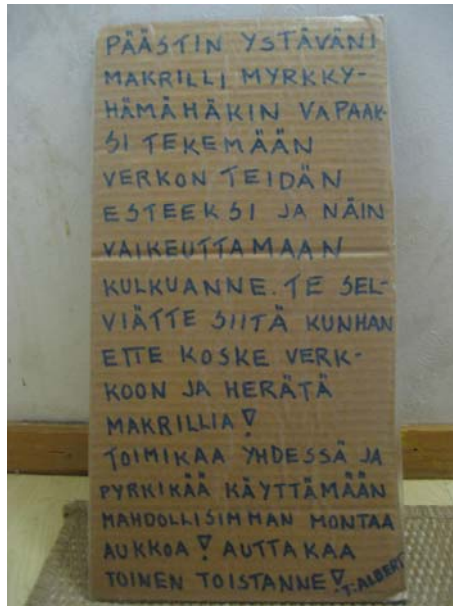 PÄÄSTIN YSTÄVÄNI
MAKRILLI MYRKKY-
HÄMÄHÄKIN VAPAAK-
SI TEKEMÄÄN
VERKON TEIDÄN
ESTEEKSI JA NÄIN
VAIKEUTTAMAAN
KULKUANNE. TE SEL-
VIÄTTE SIITÄ KUNHAN
ETTE KOSKE VERK-
KOON JA HERÄTÄ
MAKRILLIA!
TOIMIKAA YHDESSÄ JA
PYRKIKÄÄ KÄYTTÄMÄÄN
MAHDOLLISIMMAN MONTAA
AUKKOA! AUTTAKAA
TOINEN TOISTANNE!
T: ALBERT